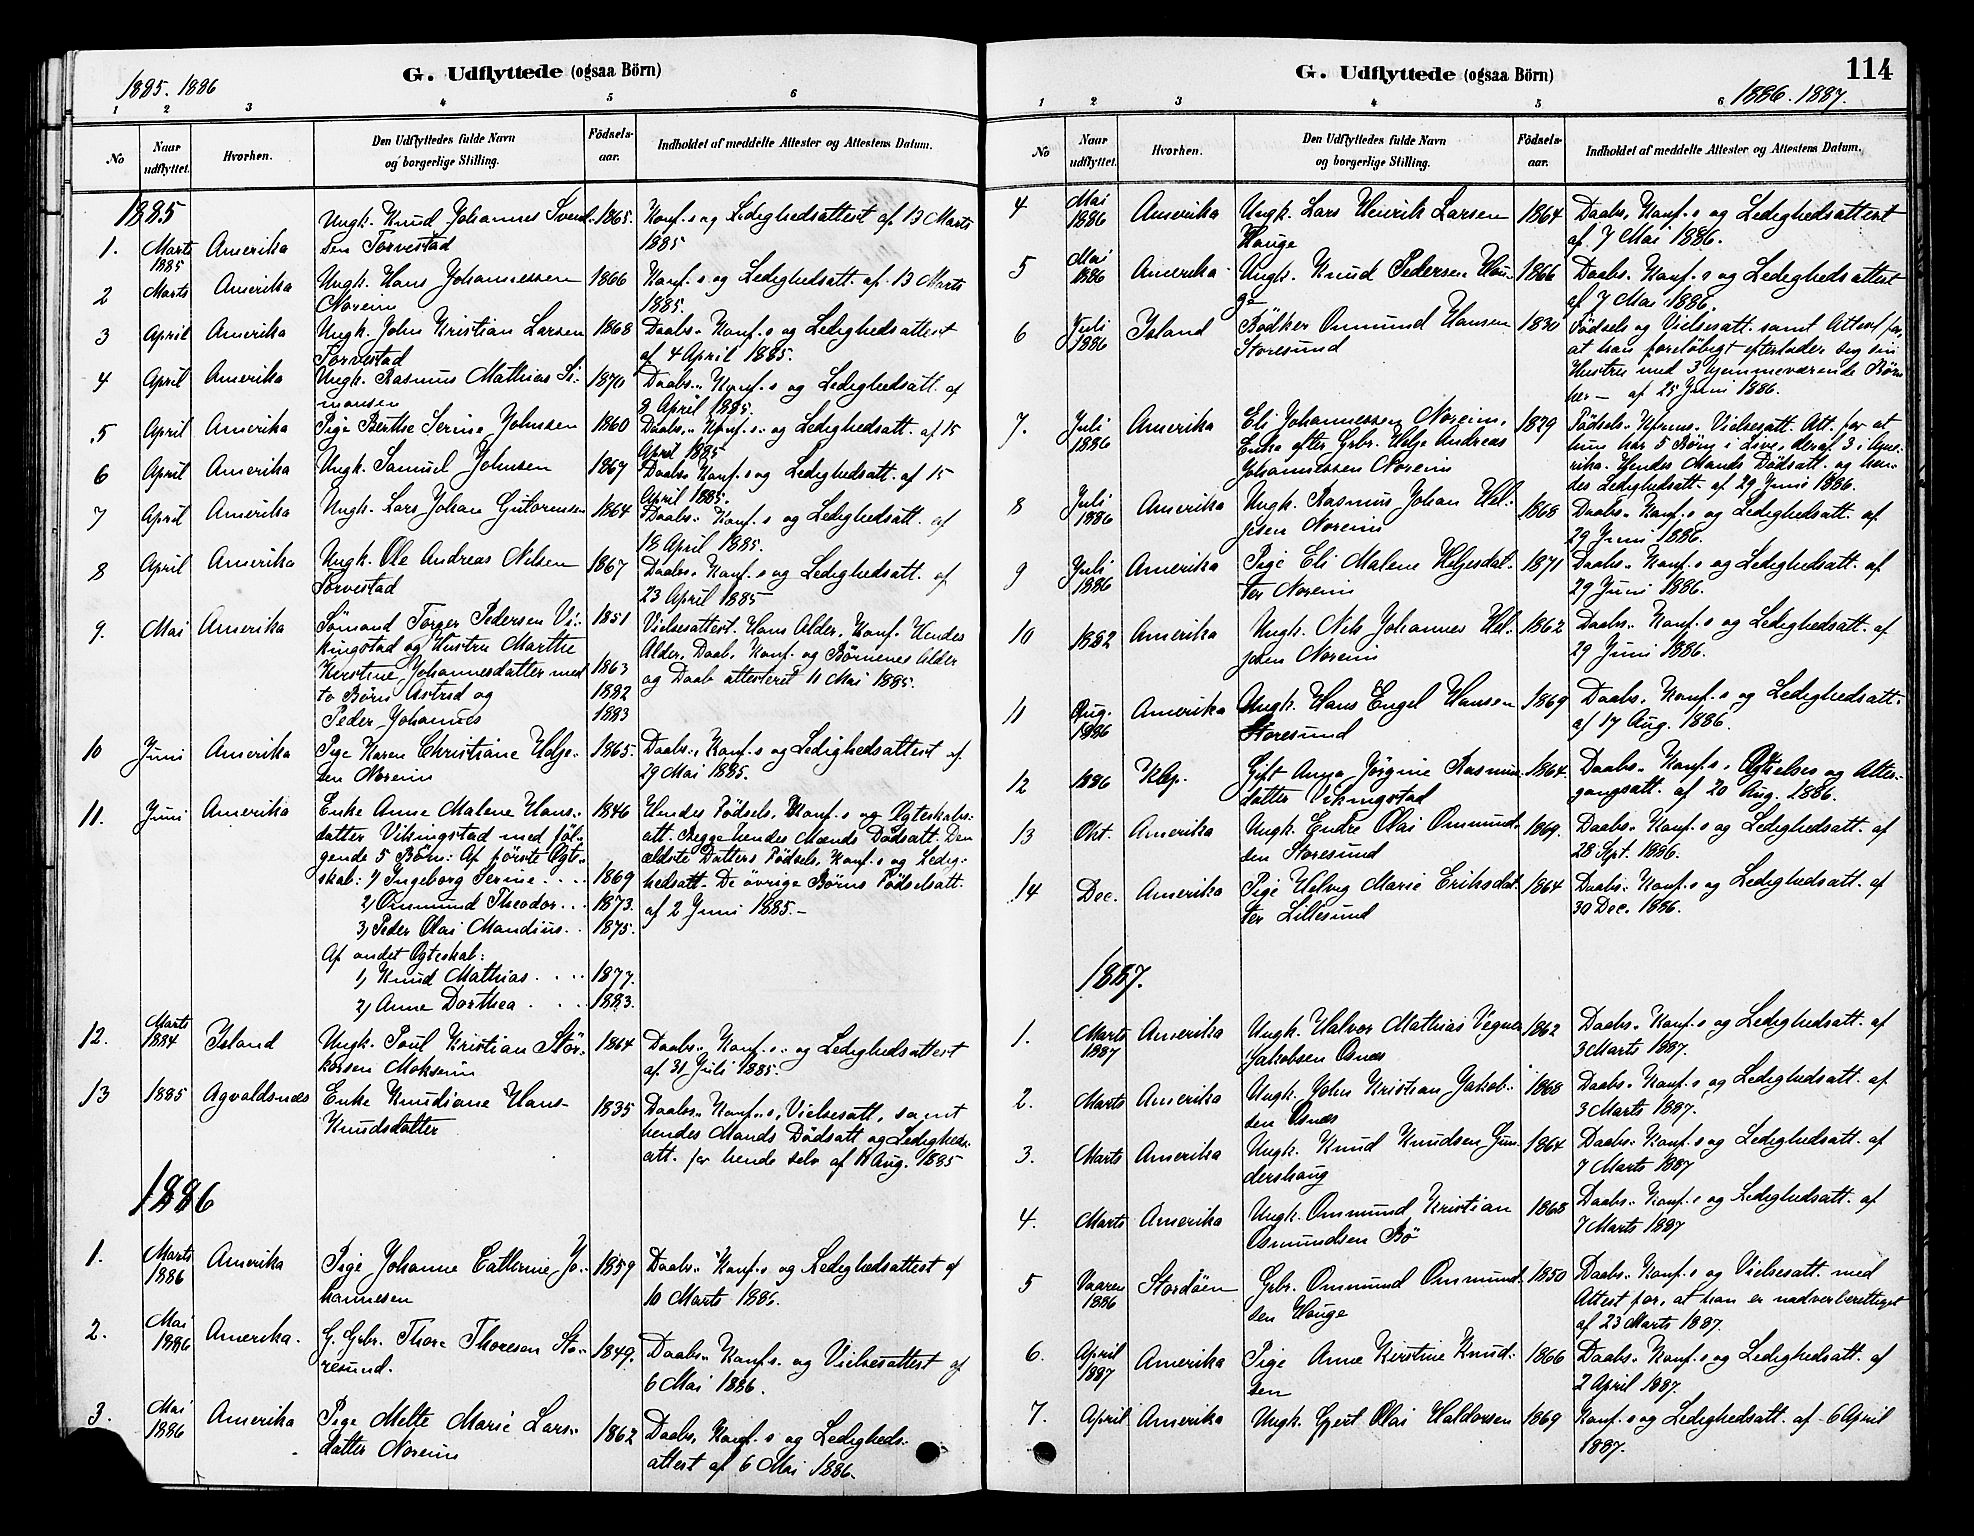 1885. 1886
G. Udflyttede (ogsaa Börn)
1 2 3 4 5 6
No
Naar udflyttet.
Hvorhen.
Den Udflyttedes fulde Navn og borgerlige Stilling.
Födsels-aar.
Indholdet af meddelte Attester og Attestens Datum.
1885
1. Marts 1885 Amerika Ungk. Knud Johannes Svend- 1865. Konf.s og Ledighedsattest af 13 Marts
sen Torvestad 1885
2 Marts Amerika Ungk. Hans Johannessen 1866 Konf.s og Ledighedsatt. af 13 Marts
Noreim 1885.
3 April Amerika Ungk. John Kristian Larsen 1868 Daabs- Konf.s og Ledighedsattest
Torvestad af 4 April 1885.
4 April Amerika Ungk. Rasmus Mathias Si- 1870 Daabs- Konf.s og Ledighedsatt. af
monsen 8 April 1885.
5 April Amerika Pige Berthe Serine Johnsen 1860 Daabs- Konf.s og Ledighedsatt. af 15
April 1885
6 April Amerika Ungk. Samuel Johnsen 1867 Daabs- Konf.s og Ledighedsatt. af 15
April 1885.
7 April Amerika Ungk. Lars Johan Gutormsen 1864 Daabs- Konf.s og Ledighedsatt. af
18 April 1885.
8 April Amerika Ungk. Ole Andreas Nilsen 1867 Daabs- Konf.s og Ledighedsatt. af
Torvestad 23 April 1885
9. Mai Amerika Sömand Torger Pedersen Vi- 1851 Vielsesattest. Hans Alder, Konf. Hendes
kingstad og Hustru Marthe Alder, Daab, Konf. og Börnenes Alder
Kirstine Johannesdatter med 1863 og Daab attesteret 11 Mai 1885.
to Börn Astrid og 1882
Peder Johannes 1883
10 Juni Amerika Pige Karen Christiane Helje- 1865. Daabs- Konf.s og Ledighedsattest af
sen Noreim 29 Mai 1885.
11. Juni Amerika Enke Anne Malene Hans- 1846 Hendes Födsels, Konf.s og Egteskabs-
datter Vikingstad med föl- att. Begge hendes Mænds Dödsatt. Den
gende 5 Börn: Af förste Egte- ældste Datters Födsels, Konf.s og Ledig-
skab: 1) Ingeborg Serine 1869 hedsatt. De övrige Börns Födselsatt.
2) Ommund Theodor 1873. af 2 Juni 1885.-
3) Peder Olai Mandius 1875.
Af andet Egteskab:
1) Knud Mathias 1877.
2) Anne Dorthea 1883.
12. Marts 1884 Island Ungk. Poul Kristian Stör- 1864 Daabs- Konf.s og Ledighedsattest
kersen Moksein af 31 Juli 1885.
13 1885 Agvaldsnæs Enke Knudiane Hans- 1835 Daabs- Konf.s, Vielsesatt., samt
Knudsdatter hendes Mands Dödsatt og Ledigheds-
att. for hende selv af 11 Aug. 1885
1886
1. Marts 1886 Amerika Pige Johanne Cathrine Jo- 1859 Daabs- Konf.s og Ledighedsattest af
hannesen 10 Marts 1886.
2. Mai 1886 Amerika. G. Grbr. Thore Thoresen Sto- 1849. Daabs- Konf.s. og Vielsesattest af
resund. 6 Mai 1886.
3. Mai 1886 Amerika Pige Mette Marie Lars- 1862 Daabs, Konf.s og Ledigheds-
datter Noreim attest af 6 Mai 1886.
G. Udflyttede (ogsaa Börn)
114
1886. 1887.
1 2 3 4 5 6
No
Naar udflyttet.
Hvorhen.
Den Udflyttedes fulde Navn og borgerlige Stilling.
Födsels-aar.
Indholdet af meddelte Attester og Attestens Datum.
4 Mai 1886 Amerika Ungk. Lars Henrik Larsen 1864 Daabs, Konf.s og Ledighedsattest
Hauge af 7 Mai 1886.
5 Mai 1886 Amerika Ungk. Knud Pedersen Hau- 1866 Daabs- Konf.s og Ledighedsattest
ge af 7 Mai 1886.
6 Juli 1886 Island Bödker Ommund Hansen 1830 Födsels og Vielsesatt. samt Attest for,
Storesund at han foreløbigt efterlader sig sin
Hustru med 3 hjemmeværende Börn
her - af 25 Juni 1886.
7. Juli 1886 Amerika Eli Johannessen Noreim, 1829 Födsels- Kfrms. Vielsesatt. Att. for at
Enke efter Grbr. Helje Andreas hun har 5 Börn i Live, deraf 3 i Ame-
Johannessen Noreim rika. Hendes Mands Dödsatt. og hen-
des Ledighedsatt. af 29 Juni 1886.
8 Juli 1886 Amerika Ungk. Rasmus Johan Hel- 1868 Daabs- Konf.s og Ledighedsatt. af
jesen Noreim 29 Juni 1886.
9 Juli 1886 Amerika Pige Eli Malene Heljesdat- 1871 Daabs- Konf.s og Ledighedsatt. af
ter Noreim 29 Juni 1886.
10 1882 Amerika Ungk. Nils Johannes Hel- 1862 Daabs- Konf.s og Ledighedsatt. af
jesen Noreim 29 Juni 1886.
11 Aug. 1886 Amerika Ungk. Hans Engel Hansen 1869 Daabs- Konf.s og Ledighedsatt.
Storesund af 17 Aug. 1886.
12 1886 Klep. Gift Anna Jörgine Rasmus- 1864. Daabs- Konf.s, Vielses og Atter-
datter Vikingstad gangsatt. af 20 Aug. 1886.
13 Okt. Amerika Ungk. Endre Olai Ommund- 1869. Daabs- Konf.s og Ledighedsatt. af
sen Storesund 28 Sept. 1886.
14 Dec. Amerika Pige Helvig Marie Eriksdat- 1864 Daabs- Konf.s og Ledighedsatt. af
ter Lillesund 30 Dec. 1886.
1887.
1. Marts 1887 Amerika Ungk. Halvor Mathias Vegner 1862 Daabs- Konf.s og Ledighedsatt. af
Jakobsen Osnes 3 Marts 1887.
2. Marts Amerika Ungk. John Kristian Jakob- 1868 Daabs- Konf.s og Ledighedsatt. af
sen Osnes 3 Marts 1887.
3. Marts Amerika Ungk. Knud Knudsen Gun- 1864 Daabs- Konf.s og Ledighedsatt. af
dershaug 7 Marts 1887
4. Marts Amerika Ungk. Ommund Kristian 1868 Daabs- Konf.s og Ledighedsatt. af
Osmundsen Bö 7 Marts 1887
5 Vaaren 1886 Stordöen Grbr. Ommund Ommund- 1850 Daabs- Konf.s og Vielsesatt. med
sen Hauge Attest for, at han er nadverberettiget
af 23 Marts 1887.
6. April 1887 Amerika Pige Anne Kirstine Knud- 1866 Daabs- Konf.s og Ledighedsatt. af
sen 2 April 1887.
7. April Amerika Ungk. Gjert Olai Haldorsen 1869 Konf.s og Ledighedsatt. af 6 April
1887.